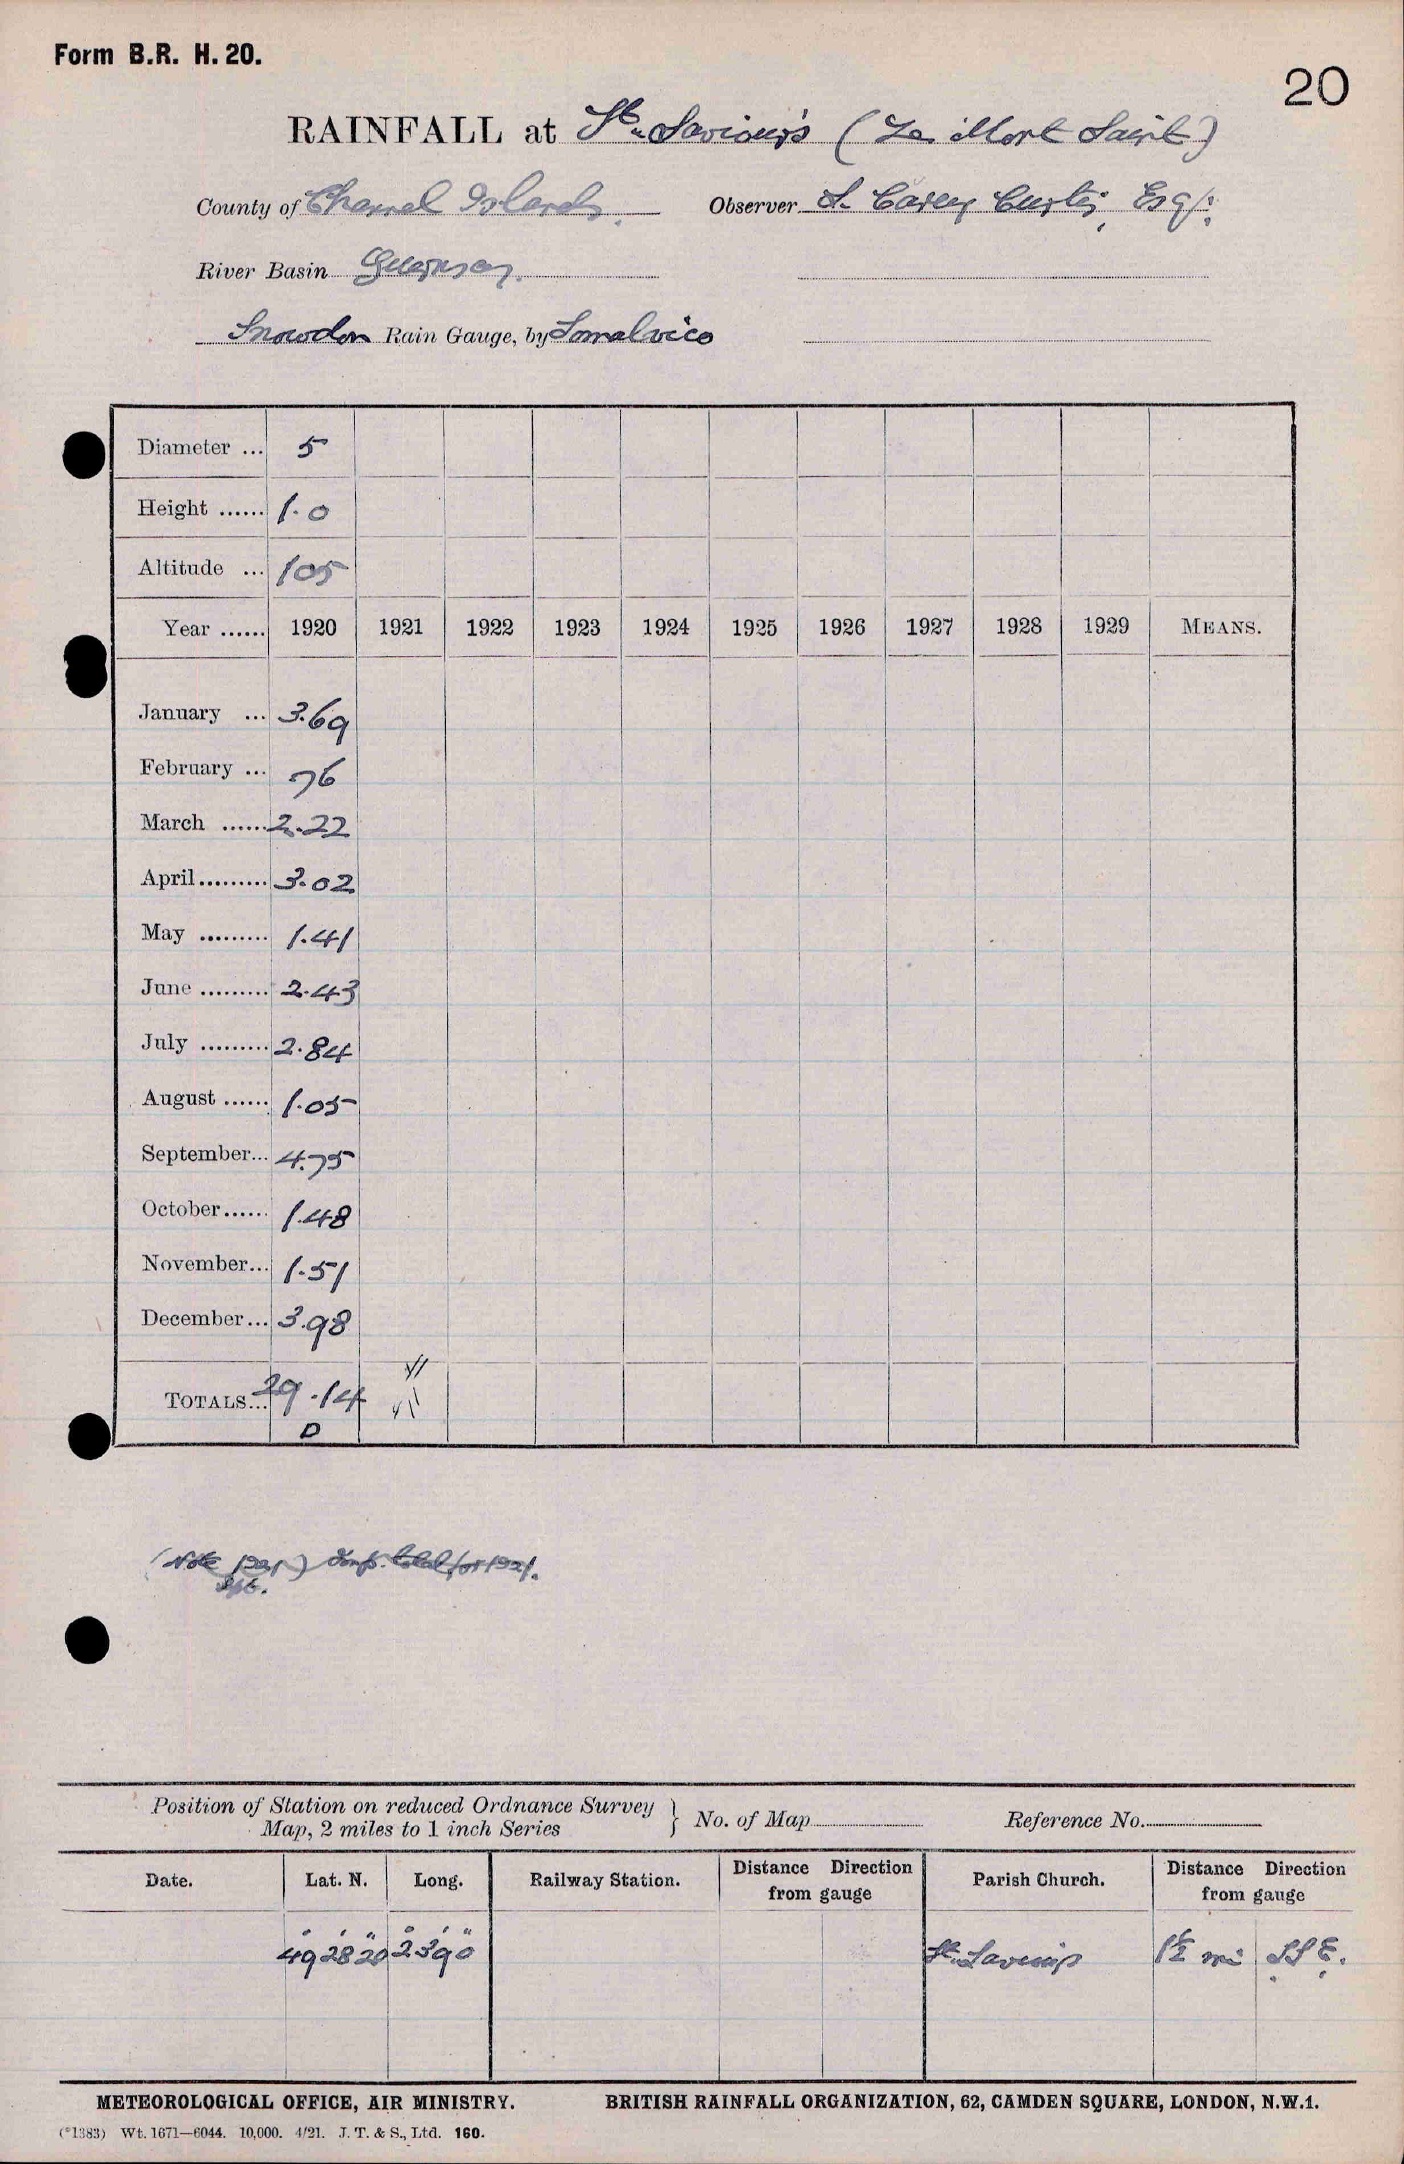 Form B.R. H. 20.
20
RAINFALL at St. Saviour's (Le Mont Saint)
County of Channel Islands. Observer S. Carey Curtis, Esq:
River Basin Guernsey.
Snowdon Rain Gauge, by Somalvico
Diameter ... 5
Height ...... 1.0
Altitude ... 105
Year ...... 1920 1921 1922 1923 1924 1925 1926 1927 1928 1929 MEANS.
January ... 3.69
February ... 76
March ...... 2.22
April ......... 3.02
May ......... 1.41
June ......... 2.43
July ......... 2.84
August ...... 1.05
September... 4.75
October ...... 1.48
November... 1.51
December ... 3.98
TOTALS... 29.14
D
(Note total for 1921.
Position of Station on reduced Ordnance Survey
Map, 2 miles to 1 inch Series } No. of Map Reference No.
Date. Lat. N. Long. Railway Station. Distance Direction from gauge Parish Church. Distance Direction from gauge
49° 28' 20" 2° 39' 0" St. Saviour's 1½ mi SSE.
METEOROLOGICAL OFFICE, AIR MINISTRY. BRITISH RAINFALL ORGANIZATION, 62, CAMDEN SQUARE, LONDON, N.W.1.
(*1383) Wt. 1671—6044. 10,000. 4/21. J. T. & S., Ltd. 160.